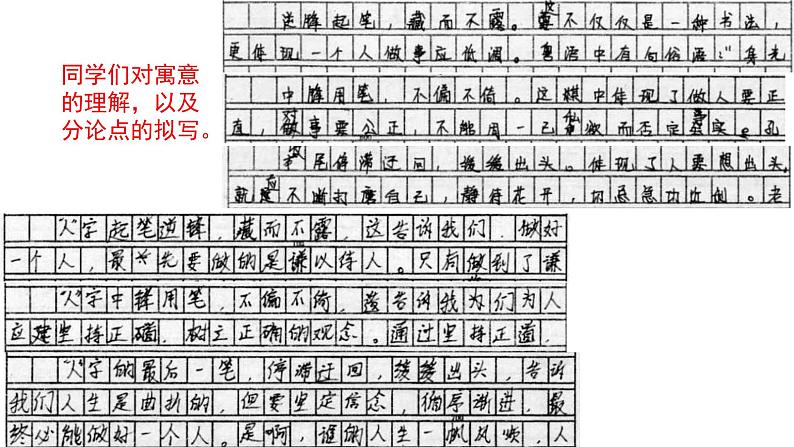 同学们对寓意
的理解，以及
分论点的拟写。
逆锋起笔，藏而不露。这不仅仅是一种书法，
更体现一个人做事应低调。粤语中有句俗语："身光
中锋用笔，不偏不倚。这模中体现了做人要正
直，对事要公正，不能用一己私欲而否定事实。孔
收尾停滞迂回，缓缓出头。体现了人要想出头，
就应不断打磨自己，静待花开，切忌急功近利。老
"人"字起笔逆锋，藏而不露，这告诉我们，做好
一个人，最先要做的是谦以待人。只有做到了谦
"人"字中锋用笔，不偏不倚，告诉我们为人
应建坚持正确，树立正确的观念。通过坚持正道，
"人"字的最后一笔，停滞迂回，缓缓出头，告诉
我们人生是曲折的，但要坚定信念，循序渐进，最
终必能做好一个人。是啊，谁的人生一帆风顺，人